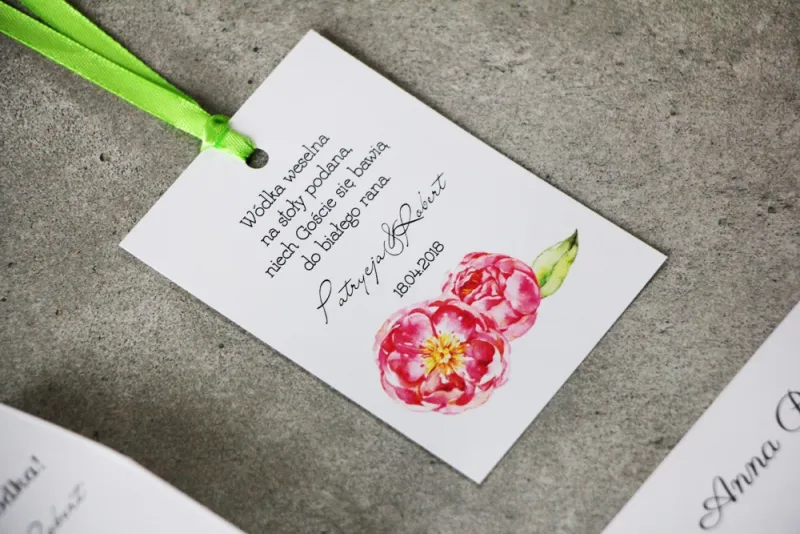 Wódka weselna
na stoły podana,
niech Goście się bawią
do białego rana.
Patrycja & Robert
18.04.2018
Anna